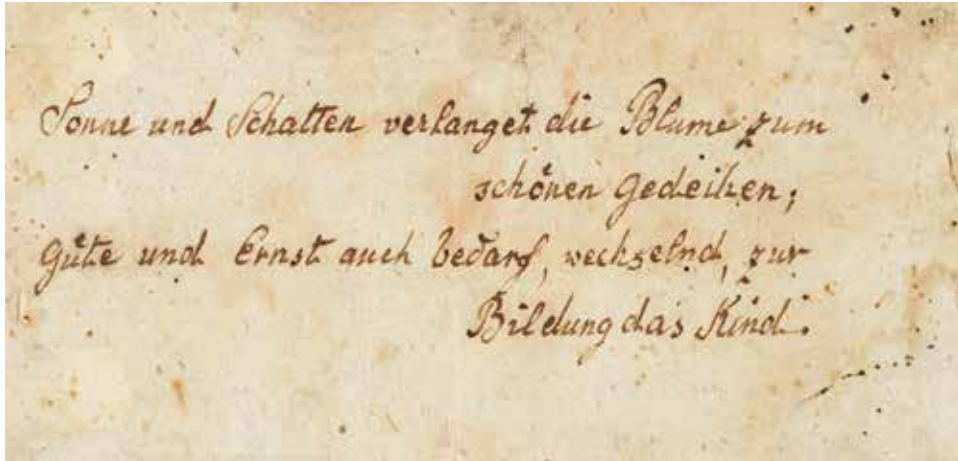 Sonne und Schatten verlanget die Blume zum
schönen Gedeihen;
Güte und Ernst auch bedarf, wechselnd, zur
Bildung das Kind.